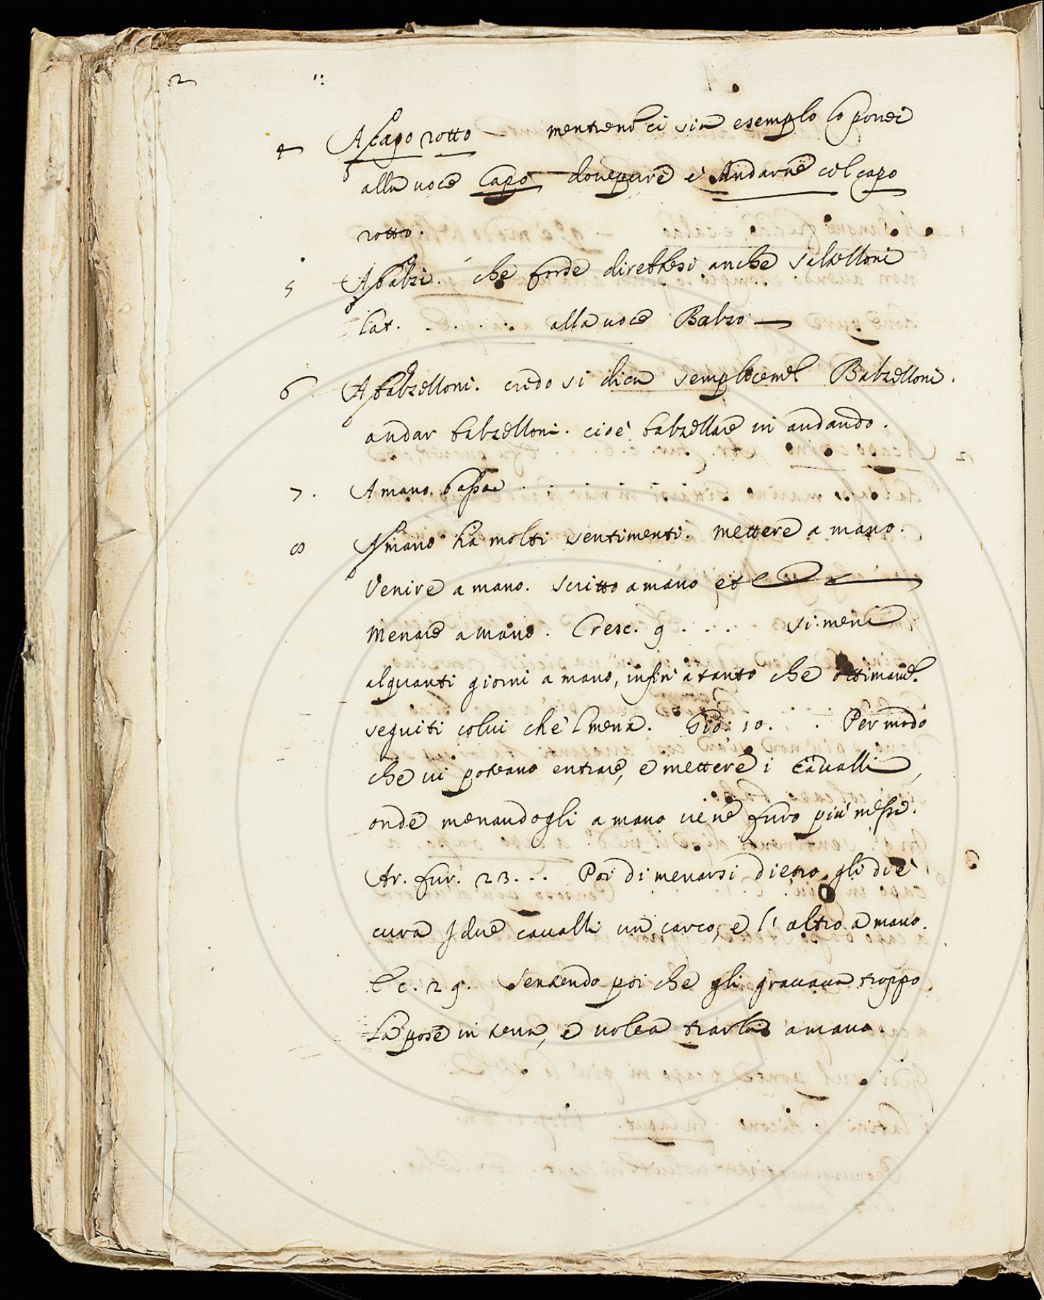 2
4 A capo rotto mentrend ci sia esempio lo porrei
alla uoce Capo doue pure è Andarne col capo
rotto.
5 A balzi. che forse direbbesi anche balzelloni
Lat. . . . . alla uoce Balzo
6 A balzelloni. credo si dica semplicem.te Balzelloni.
andar balzelloni. cioè balzellare in andando.
7. A mano bassa . . .
8 A mano ha molti sentimenti. mettere a mano.
Venire a mano. scritto a mano et
Menare a mano. Cresc. 9 . . . . si meni
alquanti giorni a mano, infin a tanto che ottimam.te
seguiti colui che 'l mena. Gio: 10. . . Per modo
che ui poteano entrare, e mettere i caualli,
onde menandogli a mano ue ne furo più messi.
Ar. fur. 23. . . Poi di menarsi dietro gli diè
cura I due caualli un carco, e l'altro a mano.
E c. 29. Sentendo poi che gli grauaua troppo,
La pose in terra, e uolea trarla a mano